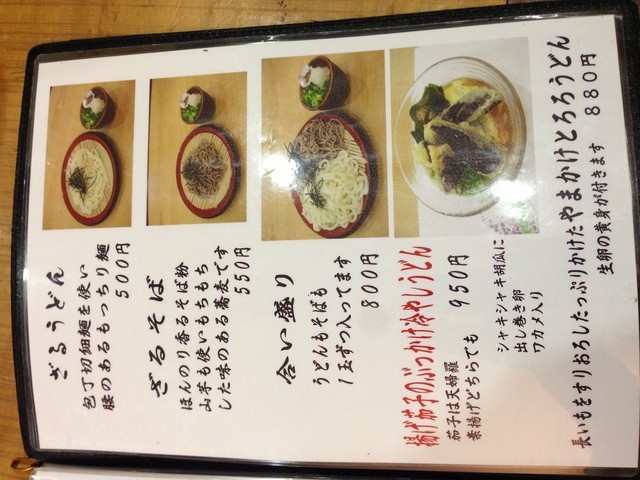 ざるうどん
包丁切細麺を使い
腰のあるもっちり麺
500円
ざるそば
ほんのり香るそば粉
山芋も使いもちもち
した味のある蕎麦です
550円
合い盛り
うどんもそばも
1玉ずつ入ってます
800円
揚げ茄子のぶっかけ冷やしうどん
950円
茄子は天婦羅
素揚げどちらでも
シャキシャキ胡瓜に
出し巻き卵
ワカメ入り
長いもをすりおろしたっぷりかけたやまかけとろろうどん
880円
生卵の黄身が付きます